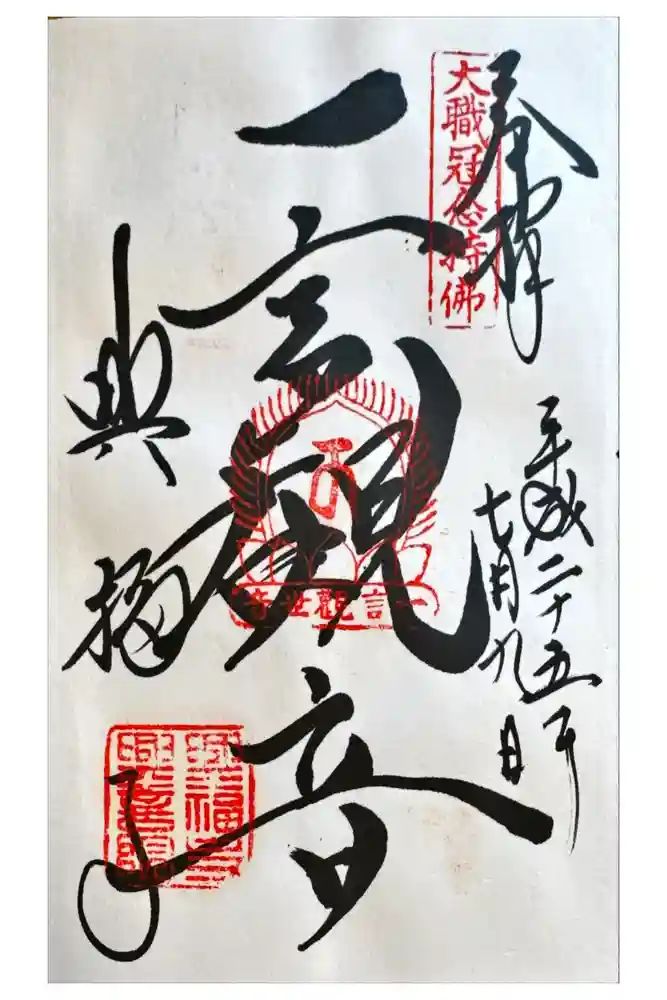 奉拝
大職冠念持佛
平成二十五年
七月九日
一言觀音
一言觀世音
興福寺
興福寺